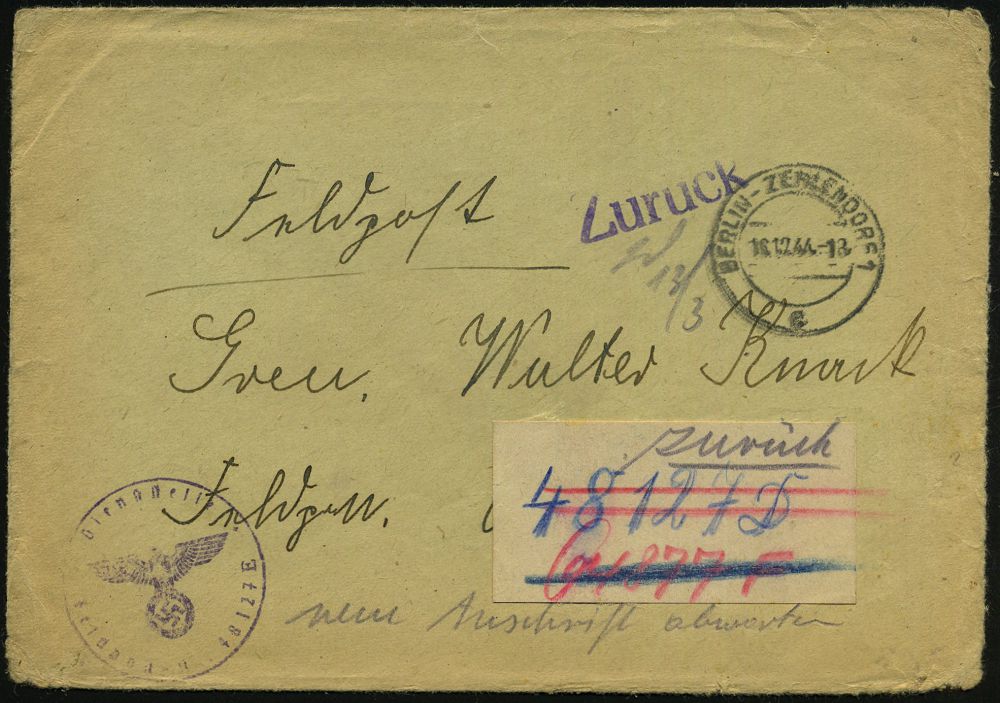 Feldpost
Zurück
BERLIN-ZEHLENDORF 1
18.12.44.-18
e
12/3
Gren. Walter Knack
zurück
Feldpn.
48127 D
Dienststelle
48127 E
neue Anschrift abwarten